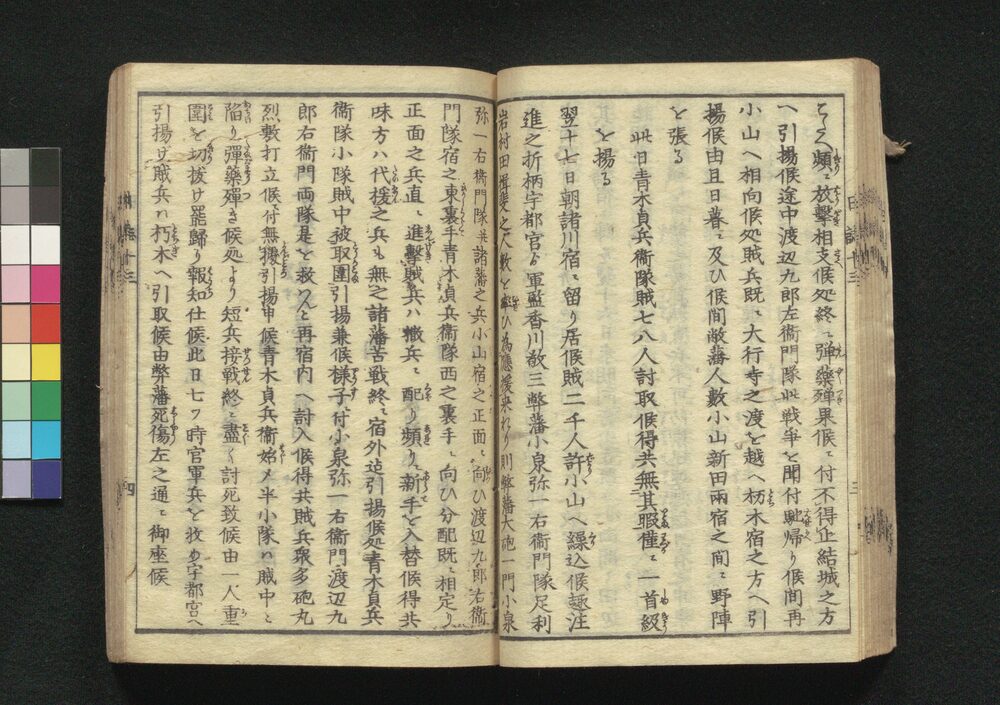 く頻ニ放撃相支候処終ニ弾藥殫果候ニ付不得止結城之方
ヘ引揚候途中渡辺九郎左衞門隊此戦争ヲ聞付馳帰リ候間再
小山ヘ相向候処賊兵既ニ大行寺之渡ヲ越ヘ栃木宿之方ヘ引
揚候由且日暮ニ及ひ候間敝藩人数小山新田両宿之間ニ野陣
ヲ張る
此日青木貞兵衞隊賊七八人討取候得共無其暇僅ニ一首級
ヲ揚る
翌十七日朝諸川宿ニ留り居候賊二千人許小山ヘ繰込候趣注
進之折柄宇都官ゟ軍監香川敬三弊藩小泉弥一右衞門隊足利
岩村田揖斐之人数ヲひ為應援来れり則弊藩大砲一門小泉
弥一右衞門隊并諸藩之兵小山宿之正面ニ向ひ渡辺九郎右衞
門隊宿之東裏手青木貞兵衞隊西之裏手ニ向ひ分配既ニ相定り
正面之兵直ニ進撃賊兵ハ撒兵ニ配り頻りニ新手を入替候得共
味方ハ代援之兵も無之諸藩苦戦終ニ宿外迠引揚候処青木貞兵
衞隊小隊賊中被取圍引揚兼候様子ニ付小泉弥一右衞門渡辺九
郎右衞門両隊是を救んと再宿内ヘ討入候得共賊兵衆多砲丸
烈敷打立候ニ付無據引揚申候青木貞兵衞始メ半小隊ハ賊中ニ
陥り彈藥殫き候処より短兵接戦終ニ盡く討死致候由一人重
圍を切拔け罷歸り報知仕候此日七ツ時官軍兵を收め宇都宮ヘ
引揚け賊兵ハ朽木ヘ引取候由弊藩死傷左之通ニ御座候
四